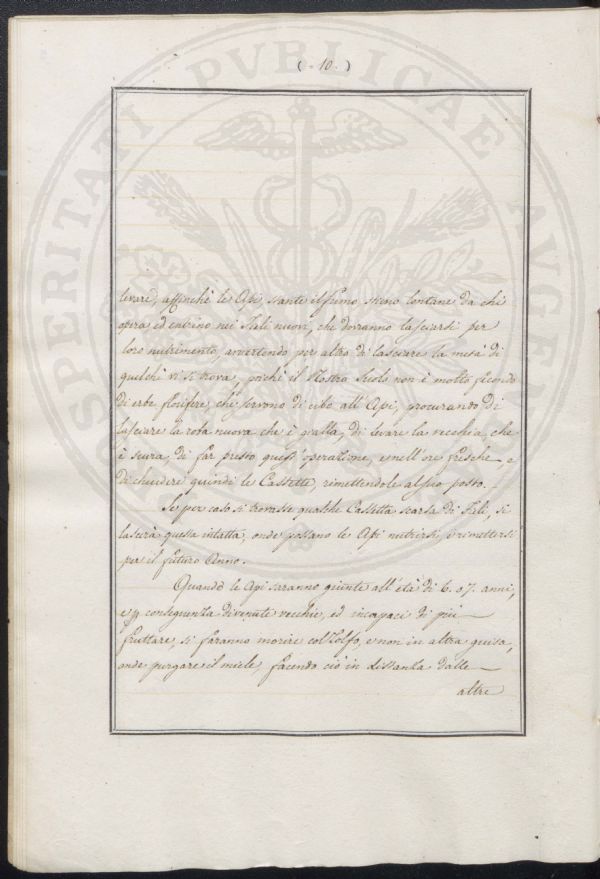 ( 10. )
PVBLICAE
PROSPERITATI
AVGENDAE
levare, affinchè le Api stante il fumo stieno lontane da chi
opera ed entrino nei Fieli nuovi, che dovranno lasciarsi per
loro nutrimento, avvertendo per altro di lasciare la metà di
quelchè vi si trova, poichè il Nostro Suolo non è molto fecondo
di erbe florifere, che servono di cibo all'Api, procurando di
lasciare la rosa nuova che è gialla, di levare la vecchia, che
è scura, di far presto quest'operazione, e nell'ore fresche, e
di chiudere quindi le Cassette, rimettendole al suo posto.
Se per caso si trovasse qualche Cassetta scarsa di Fieli, si
lascerà questa intatta, onde possano le Api nutrirsi, e rimettersi
per il futuro Anno.
Quando le Api saranno giunte all'età di 6. o 7. anni,
e p conseguenza divenute vecchie, ed incapaci di più
fruttare, si faranno morire col Zolfo, e non in altra guisa,
onde purgare il miele, facendo ciò in distanza dalle
altre